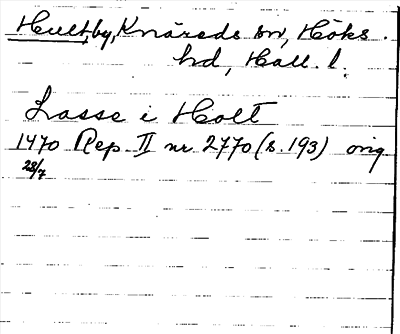 Hult, by, Knäreds sn, Höks.
hd, Hall. l.
Lasse i Holt
1470 Rep. II nr 2770 (s. 193) orig
28/7